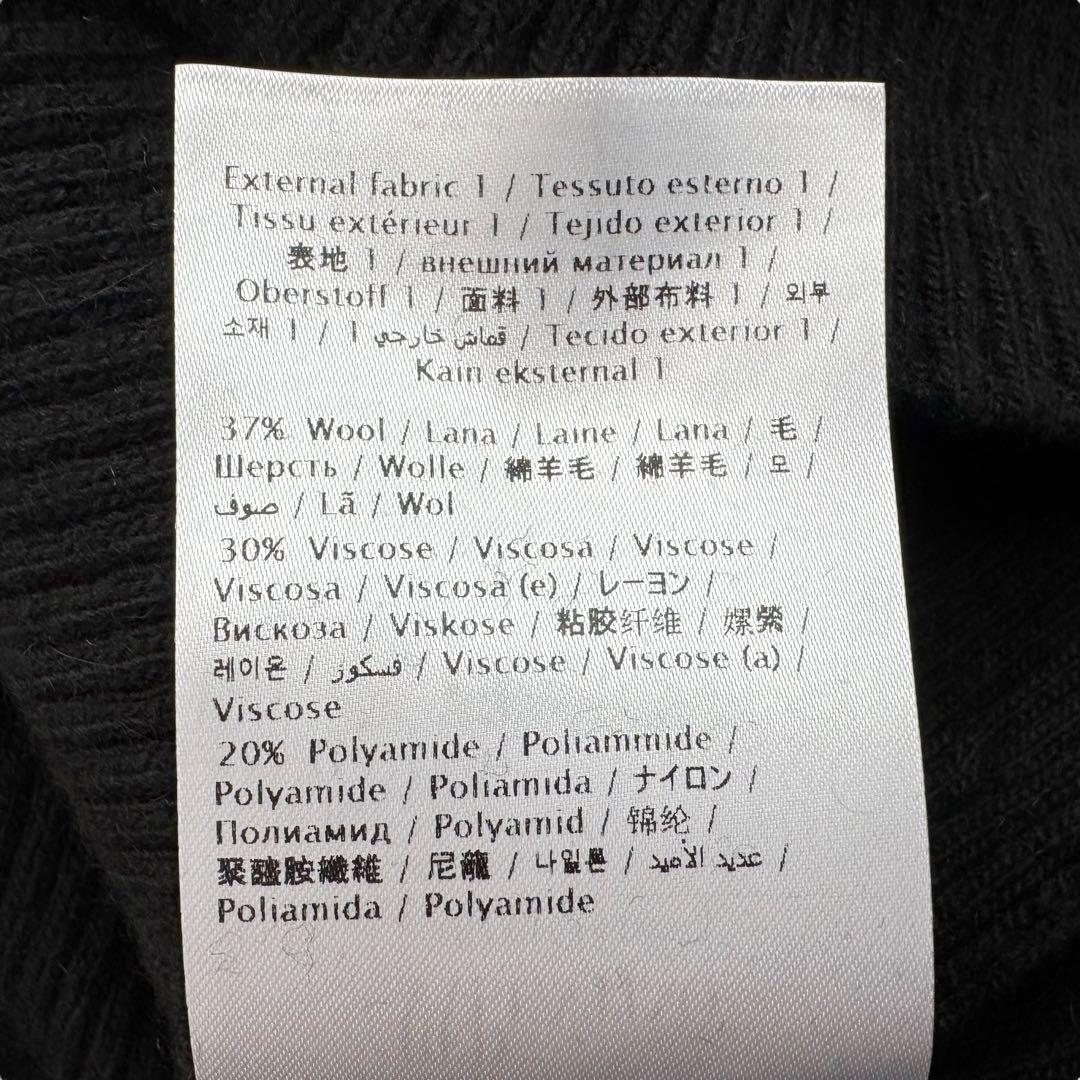 External fabric 1 / Tessuto esterno 1 /
Tissu extérieur 1 / Tejido exterior 1 /
表地 1 / внешний материал 1 /
Oberstoff 1 / 面料 1 / 外部布料 1 / 외부
소재 1 / قماش خارجي 1 / Tecido exterior 1 /
Kain eksternal 1
37% Wool / Lana / Laine / Lana / 毛 /
Шерсть / Wolle / 綿羊毛 / 綿羊毛 / 모 /
صوف / Lã / Wol
30% Viscose / Viscosa / Viscose /
Viscosa / Viscosa (e) / レーヨン /
Вискоза / Viskose / 粘胶纤维 / 嫘縈 /
레이온 / فسكوز / Viscose / Viscose (a) /
Viscose
20% Polyamide / Poliammide /
Polyamide / Poliamida / ナイロン /
Полиамид / Polyamid / 锦纶 /
聚醯胺纖維 / 尼龍 / 나일론 / عديد الأميد /
Poliamida / Polyamide